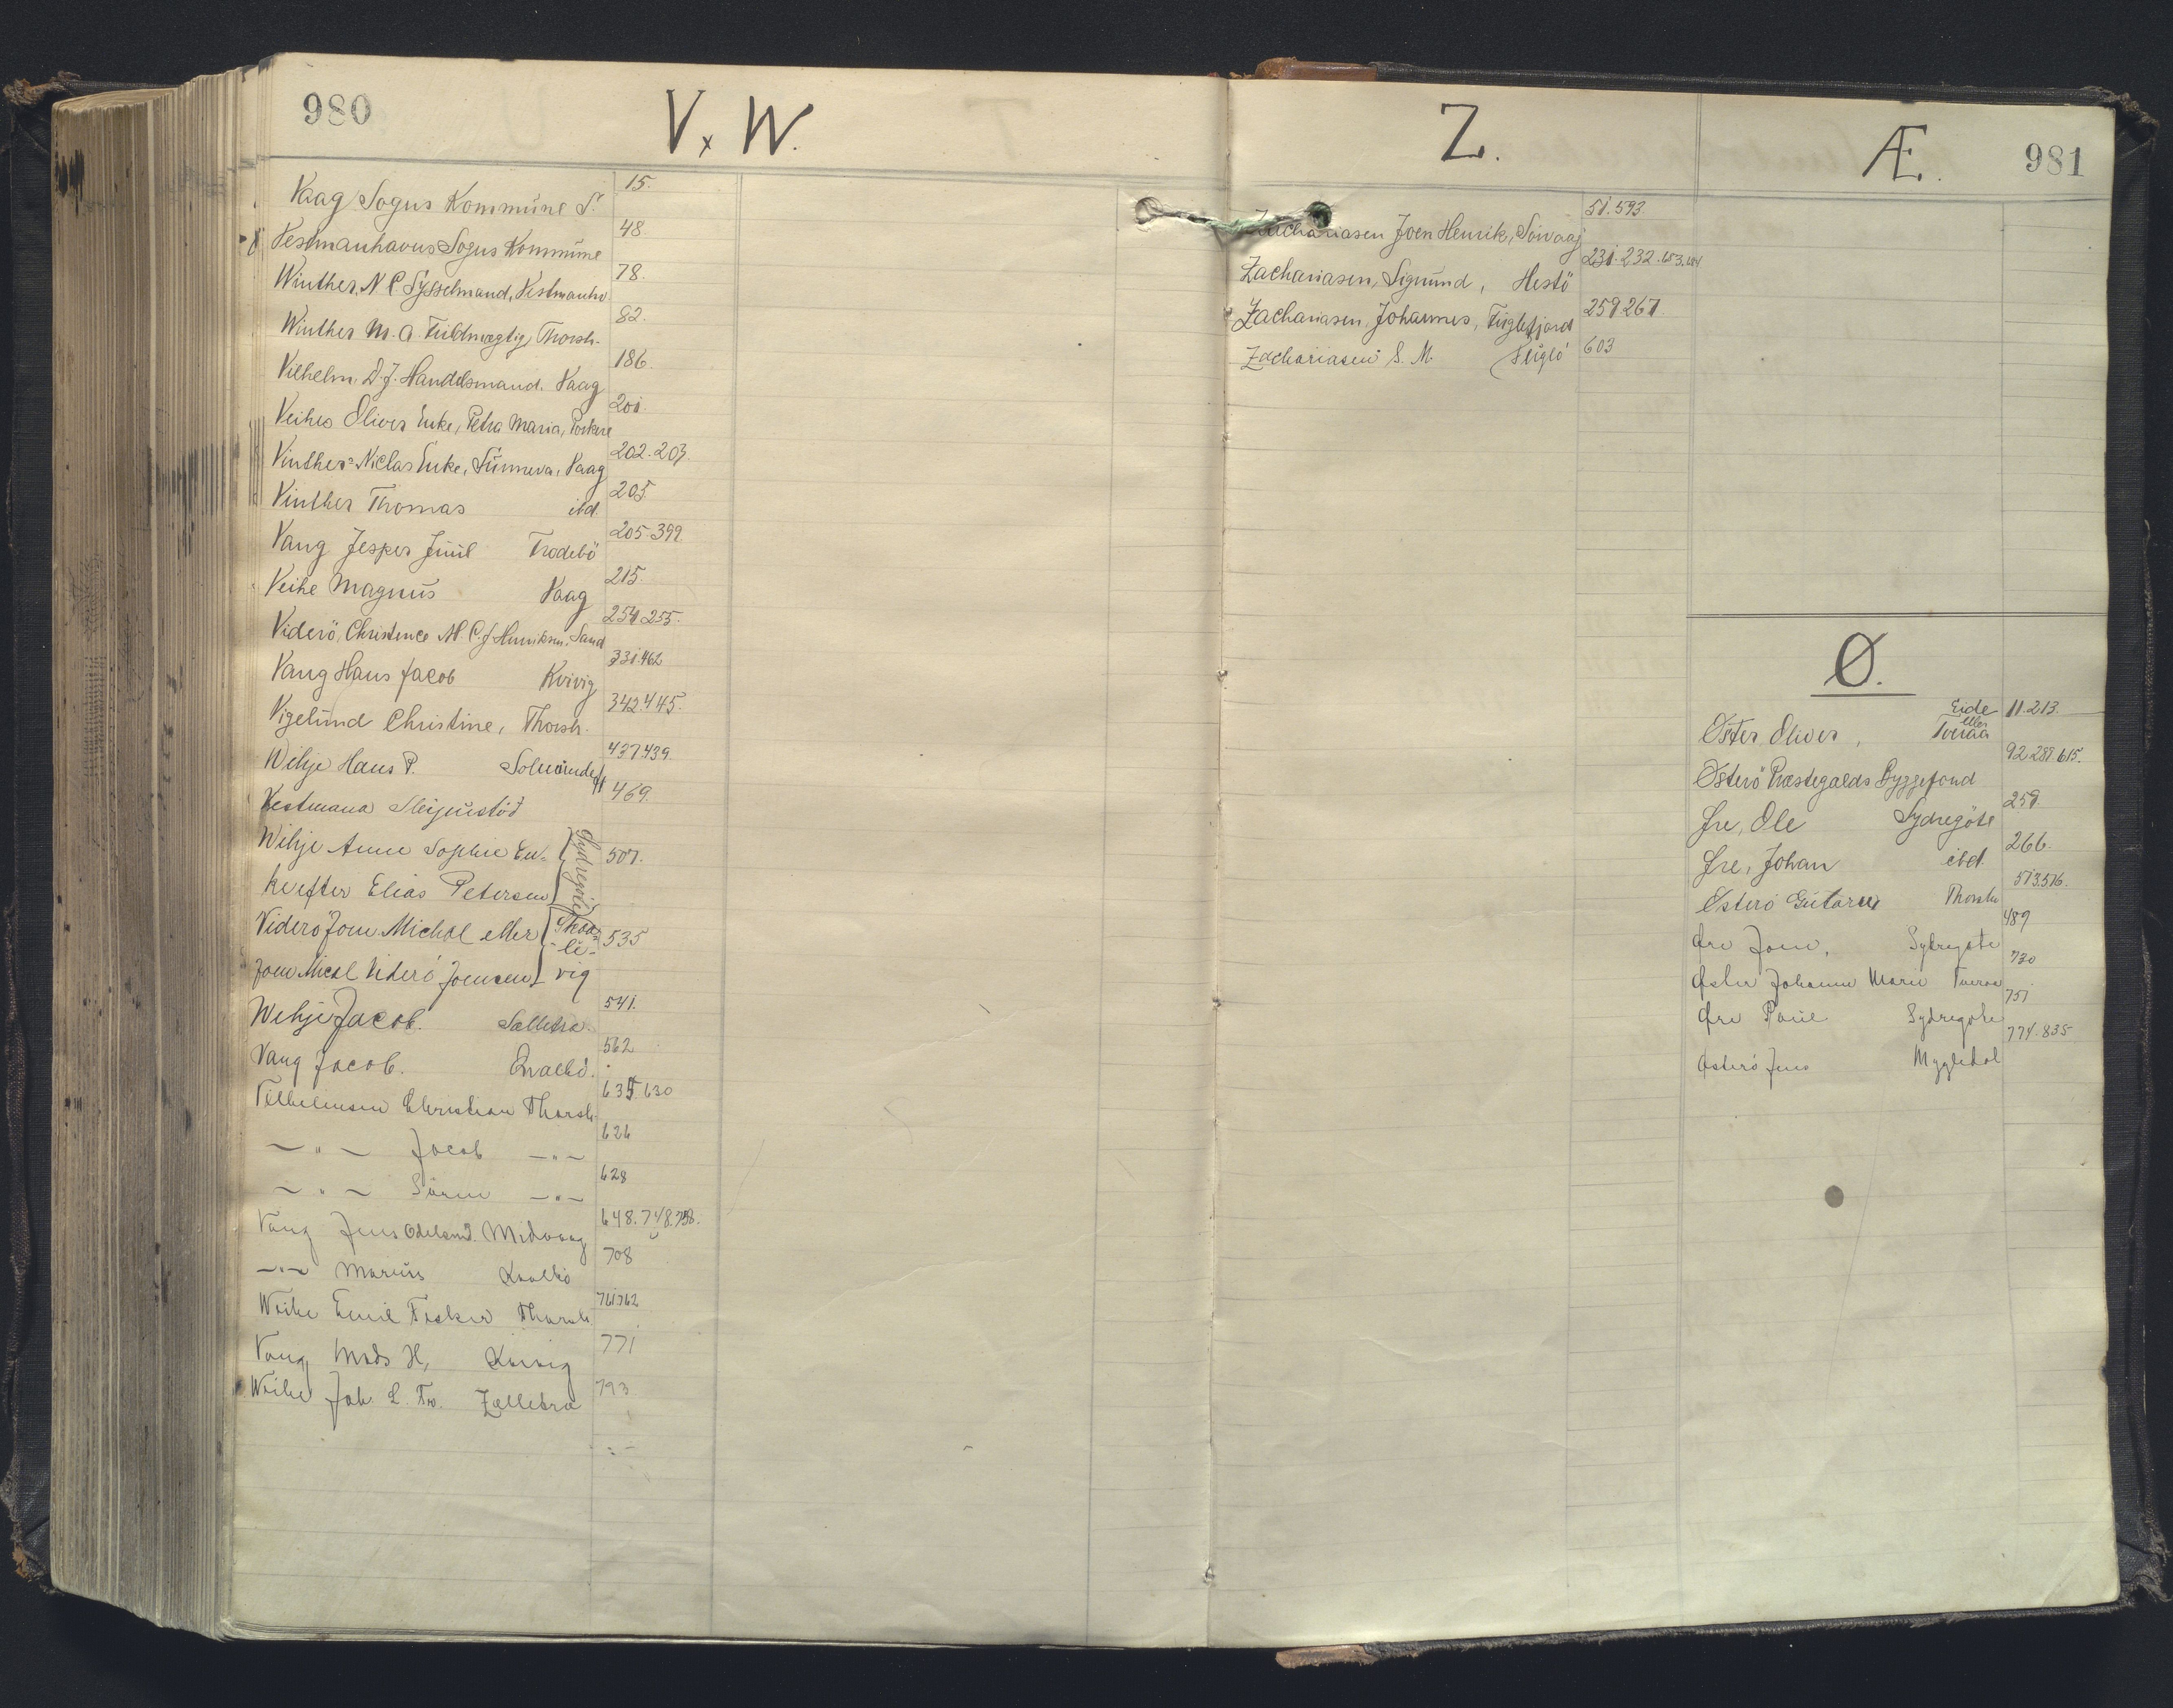 980
V. W.
Vaag Sogns Kommune S. 15.
Vestmanhavns Sogns Kommune 48.
Winther, N C Sysselmand, Vestmanhv 78.
Winther M. A. Fuldmægtig, Thorsh. 82.
Vilhelm. D. J. Handelsmand. Vaag 186.
Veihes Olives Enke, Petra Maria, Porkere 201.
Vinther's Niclas Enke, Sunneva, Vaag 202. 203.
Vinther Thomas ibd. 205
Vang Jesper Juul Trodebö 205. 399
Veihe Magnus Vaag 215.
Viderö, Christence M C. J Henriksen. Sand 254 255.
Vang Hans Jacob Kvivig 331. 462
Vigelund Christine, Thorsh. 342. 445.
Weihje Hans P. Solmundef 437. 439
Vestmana 469.
Weihje Anne Sophie En- Sydregöte 507.
ke efter Elias Petersen
Viderö Joen Michal eller Skaa- 535
li-
Joen Mical Viderö Joensen vig
Weihje Jacob. Selletræ 541.
Vang Jacob. Qvalbö. 562
Vilhelmsen Christian Thorsh. 635 630
— " — Jacob — " — 626
— " — Sören — " — 628
Vang Jens Midvaag 648. 748. 758.
— " — Marius Kvalbö 708
Weihe Emil Fisker Thorsh 761 762
Vang Mads H, Kvivig 771
Weihe Joh. L. Fr. Zelletræ 793
Z.
Zachariasen Joen Henrik, Sörvaag 51. 593.
Zachariasen, Sigmund, Hestö 231. 232. 683. 684
Zachariasen, Johannes, Fuglefjord 259 261.
Zachariasen S. M. Fuglö 603
Æ.
981
Ø.
Eide 11. 213.
eller
Øster Oliver, Tveraa
Österö Præstegjælds Byggefond 92 287. 615.
Øre, Ole Sydregöte 259.
Øre, Johan ibd. 266.
Österö Thorsh 513. 516.
Øre Joen, Sydregöte 489
Øster Johanne Marie Tveraa 730
Øre Poul Sydregöte 751
Österö Jens Mygledal 774. 835